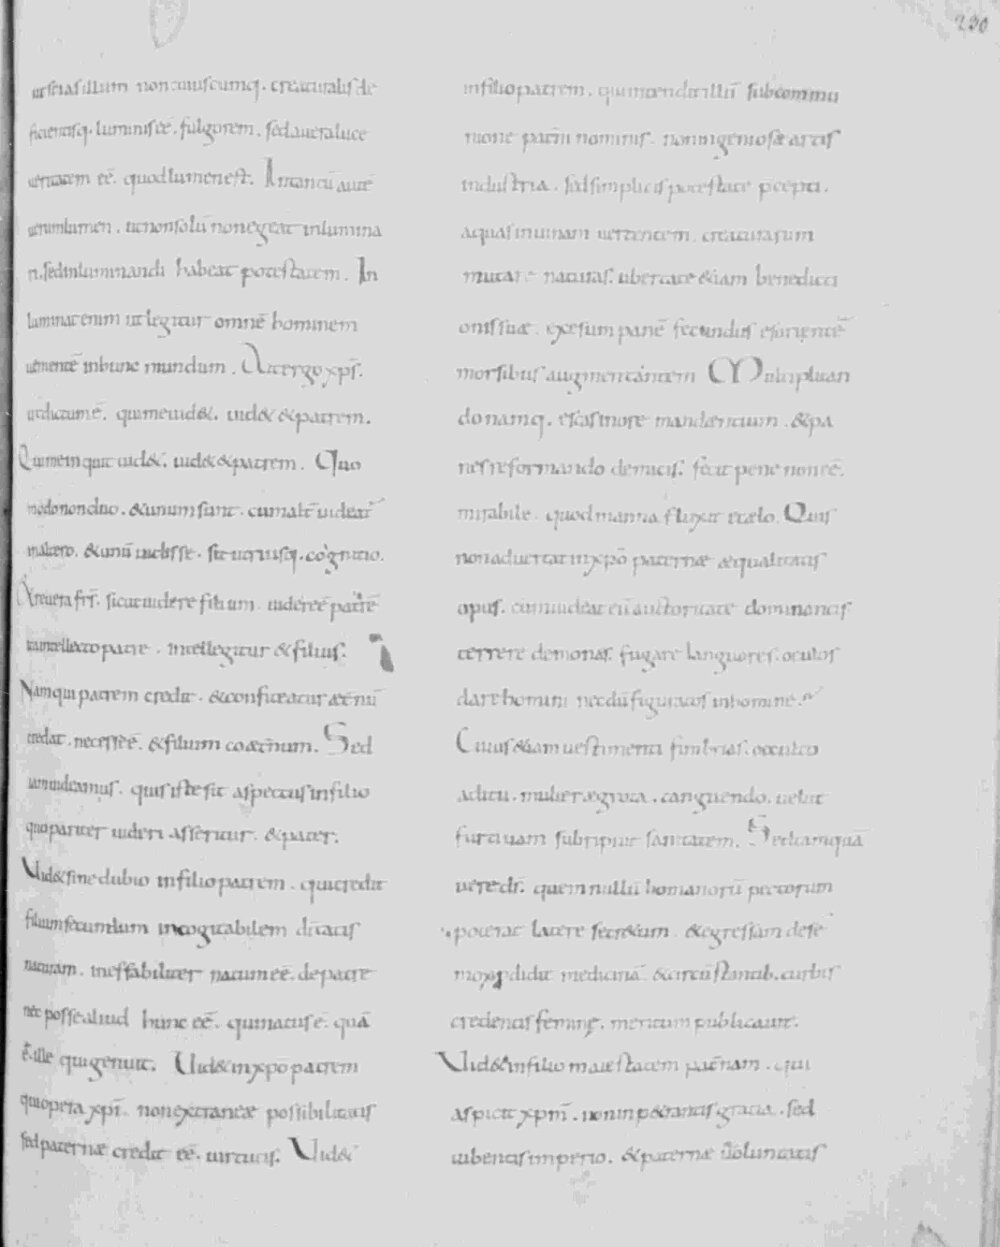 230
ut scias illum non cuiuscumq. creaturalis de
ficientisq. luminis eē. fulgorem. sed a vera luce
veritatem eē. quod lumen est. In tantū autē
verum lumen. ut non solū non egeat inlumina
ri. sed inluminandi habeat potestatem. In
luminat enim ut legitur omnē hominem
uenientē in hunc mundum. Ait ergo xp̄s.
ut dictum ē. qui me uid&. uid& & patrem.
Qui me inquit uid&. uid& & patrem. Quo
modo non duo. & unum sunt. cum alt̄ uideat̄
in altero. & unū uidisse. sit utriusq. cognitio.
Ac reuera frs̄. sicut uidere filium. uidere ē patrē
ita intellecto patre. intellegitur & filius.
Nam qui patrem credit. & confiteatur aet̄nū
credat. necesse ē. & filium coaet̄num. Sed
iam uideamus. quis iste sit aspectus in filio
quo pariter uideri asseritur. & pater.
Uid& sine dubio in filio patrem. qui credit
filium secundum incogitabilem diuitatis
naturam. ineffabiliter natum eē. de patre
nec posse aliud hunc eē. qui natus ē. quā
ē. ille qui genuit. Uid& in xp̄o patrem
qui opera xp̄i. non extraneae possibilitatis
sed paternae credit eē. uirtutis. Uid&
in filio patrem. qui intendit illū sub commu
nione patrii nominis. non ingeniosae artis
industria. sed simplicis potestate p̄cepti.
aquas in uinam uertentem. creaturarum
mutare naturas. ubertate &iam benedicti
onis suae. exesum panē fecundus esurientē
morsibus augmentantem Multiplican
do namq. escas in ore mandentium. & pa
nes reformando demicis. fecit pene non eē.
mirabile. quod manna fluxit e caelo. Quis
non aduertat in xp̄o paternae aequalitatis
opus. cum uideat eū auctoritate dominantis
terrere demonas. fugare languores. oculos
dare homini necdū figuratos in homine.
Cuius &iam uestimenti fimbrias. occulto
aditu. mulier aegrota. tangendo. uelut
furtiuam subripuit sanitatem. Sed tamquā
uere dr̄. quem nullū homanorū pectorum
poterat latere secr&um. & egressam de se
mox p̄didit medicinā. & circūstantib. turbis
credentis feminę. meritum publicauit.
Uid& in filio maiestatem pat̄nam. qui
aspicit xp̄m̄. non inp&rantis gratia. sed
iubentis imperio. & paternae uoluntatis